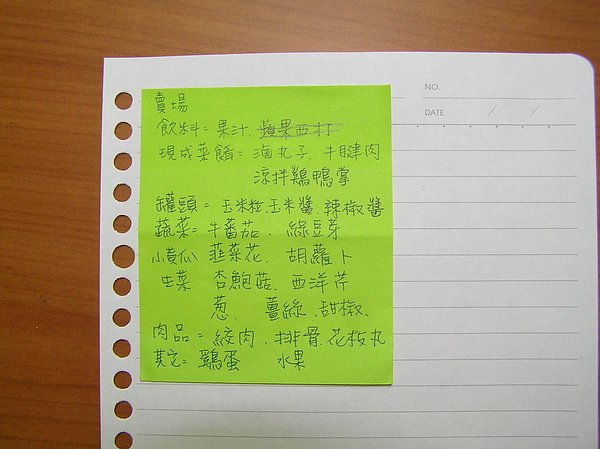 NO.
DATE / /
賣場
飲料= 果汁、蘋果西打
現成菜餚= 滷丸子、牛腱肉
涼拌鷄鴨掌
罐頭= 玉米粒、玉米醬、辣椒醬
蔬菜= 牛蕃茄、綠豆芽
小黃瓜 韮菜花、胡蘿卜
生菜 杏鮑菇、西洋芹
葱、薑絲、甜椒、
肉品= 絞肉、排骨、花枝丸
其它= 鷄蛋 水果